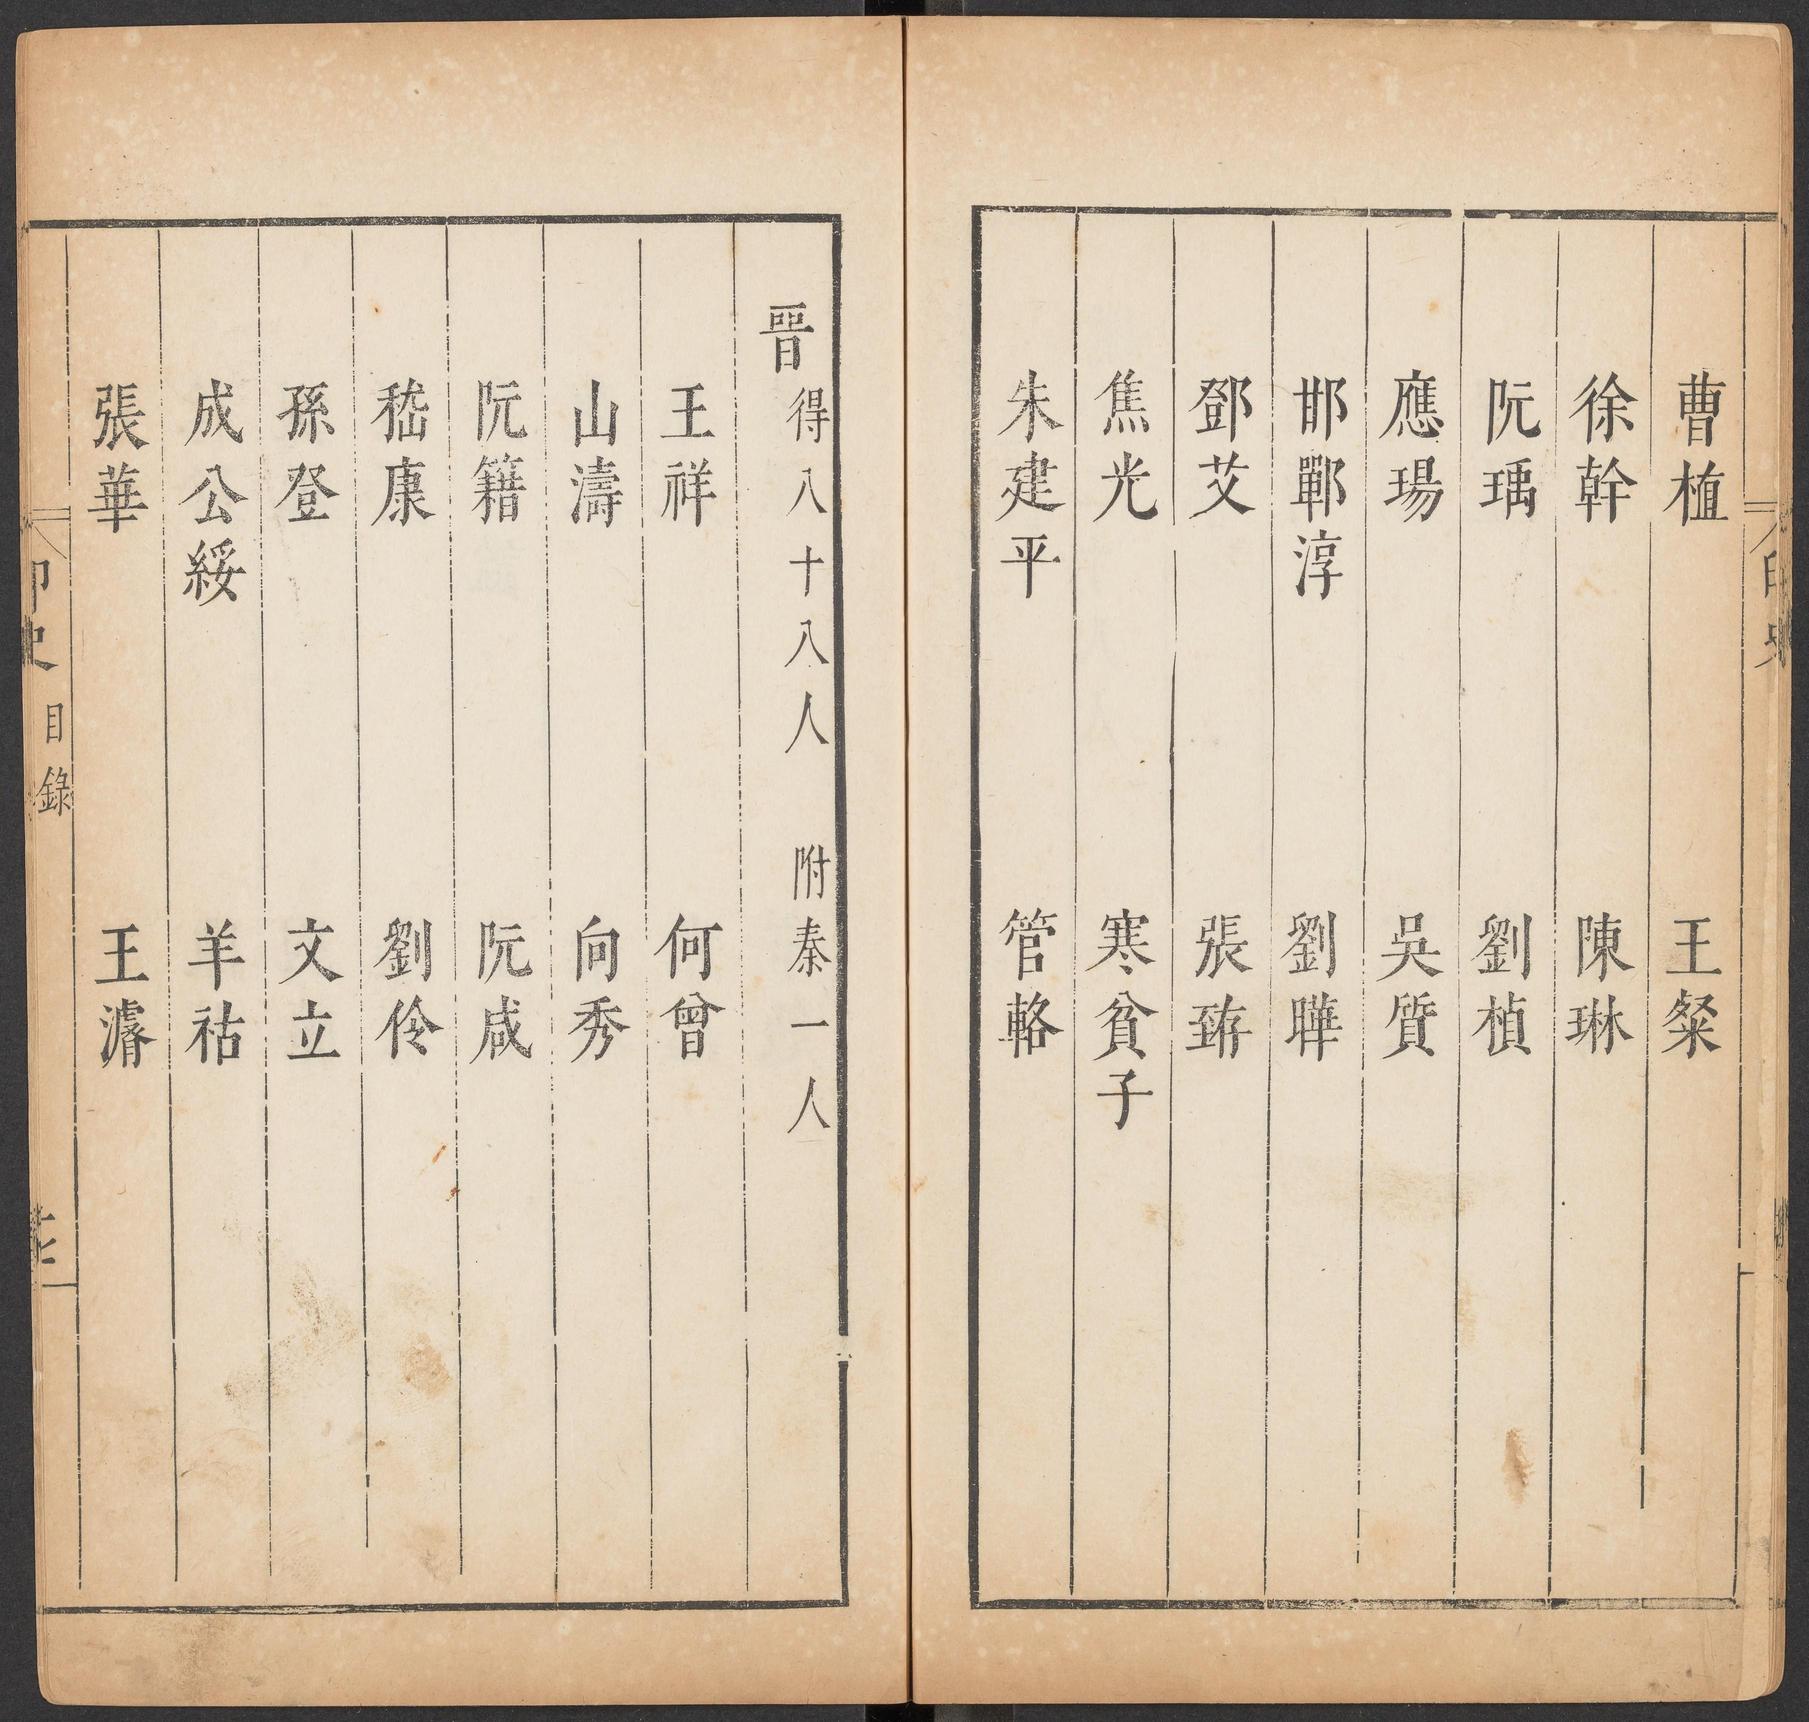 曹植　王粲
徐幹　陳琳
阮瑀　劉楨
應瑒　吳質
邯鄲淳　劉曄
鄧艾　張臶
焦光　寒貧子
朱建平　管輅
晉　得八十八人　附秦一人
王祥　何曾
山濤　向秀
阮籍　阮咸
嵇康　劉伶
孫登　文立
成公綏　羊祜
張華　王濬
印史　目錄